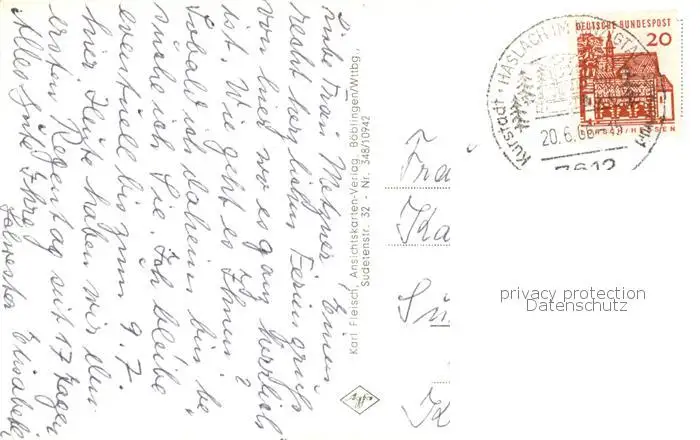 Liebe Frau Metzner, Einen
recht herzlichen Feriengruß
von hier wo es ganz herrlich
ist. Wie geht es Ihnen?
Sobald ich daheim bin, be
suche ich Sie. Ich bleibe
eventuell bis zum 9.7.
hier. Heute haben wir den
ersten Regentag seit 17 Tagen
Alles Gute Ihre
Elisabeth
Karl Fleisch, Ansichtskarten-Verlag, Böblingen/Wttbg.,
Sudetenstr. 32 - Nr. 348/10942
Frau
Ka
DEUTSCHE BUNDESPOST
20
LORSCH/HESSEN
Kurstadt · HASLACH IM KINZIGTAL
20.6.66
7612
privacy protection
Datenschutz